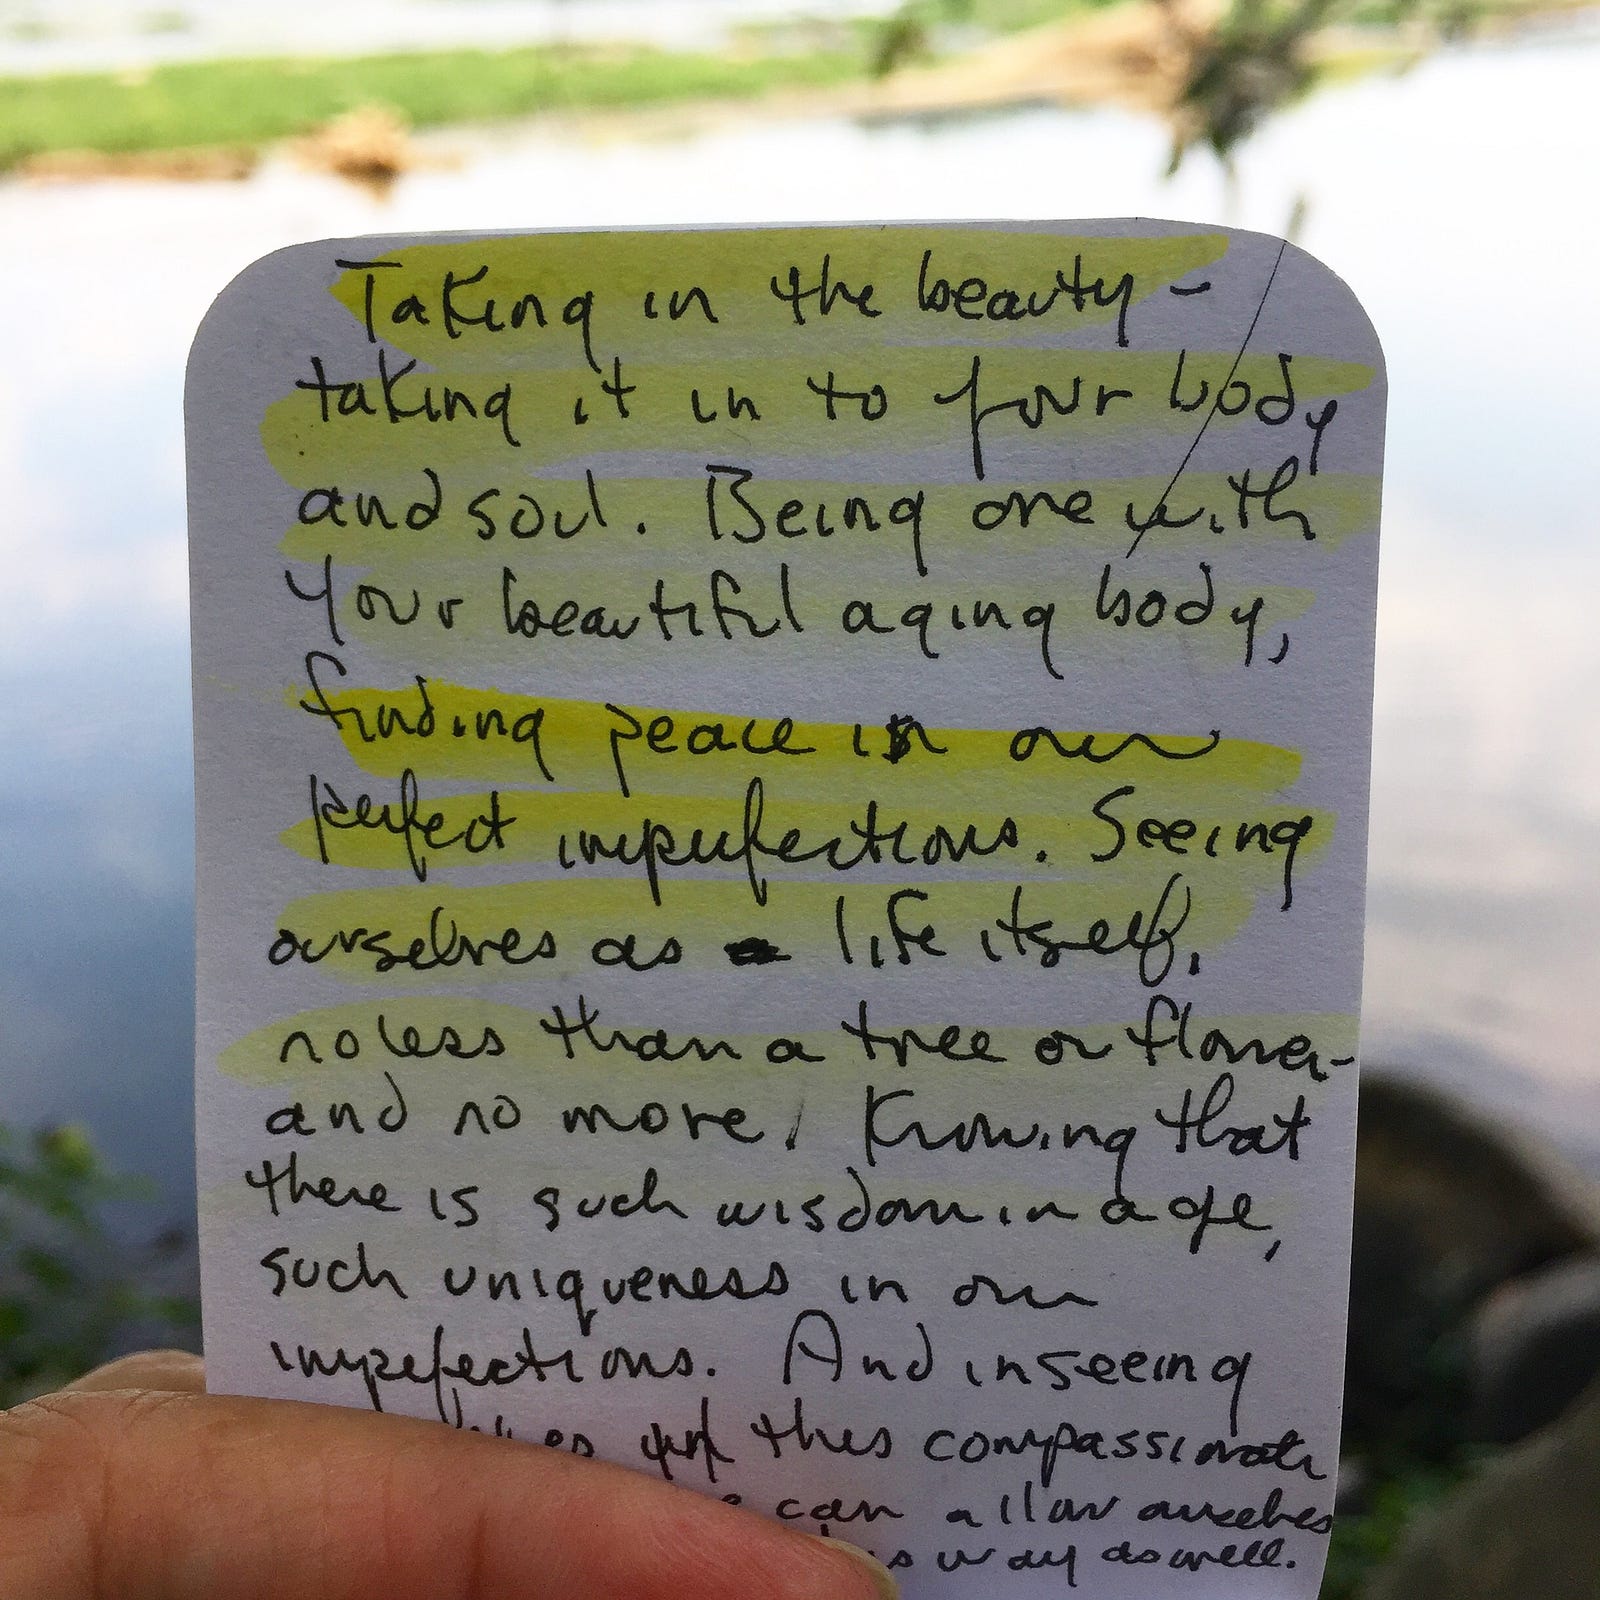 Taking in the beauty -
taking it in to your body
and soul. Being one with
your beautiful aging body,
finding peace in our
perfect imperfections. Seeing
ourselves as life itself,
no less than a tree or flower -
and no more. Knowing that
there is such wisdom in age,
such uniqueness in our
imperfections. And in seeing
this compassionate
can allow ourselves
way as well.